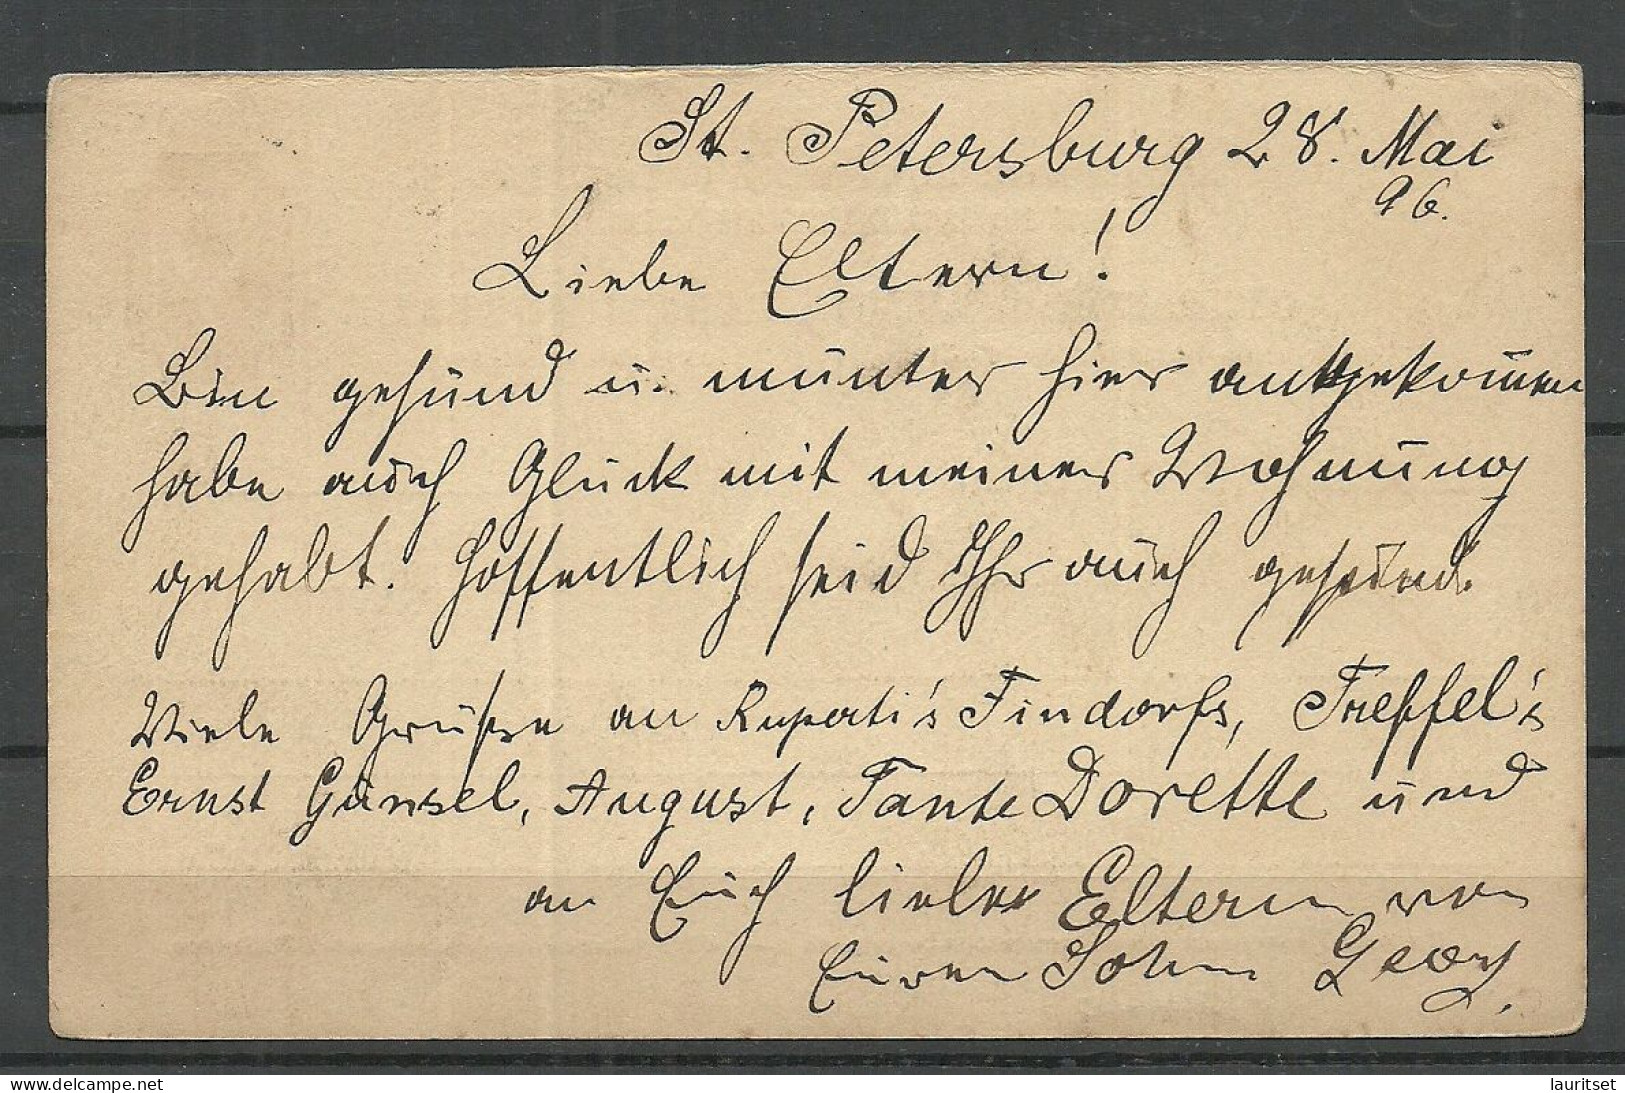 St. Petersburg 28. Mai
96.
Liebe Eltern!
Bin gesund u. munter hier angekom̅en
habe auch Glück mit meiner Wohnung
gehabt. Hoffentlich seid Ihr auch gesund.
Viele Grüße an Findorfs, Treffel's
Ernst Günsel, August, Tante Dorette und
an Euch lieben Eltern von
Euren Sohn Georg.
lauritset